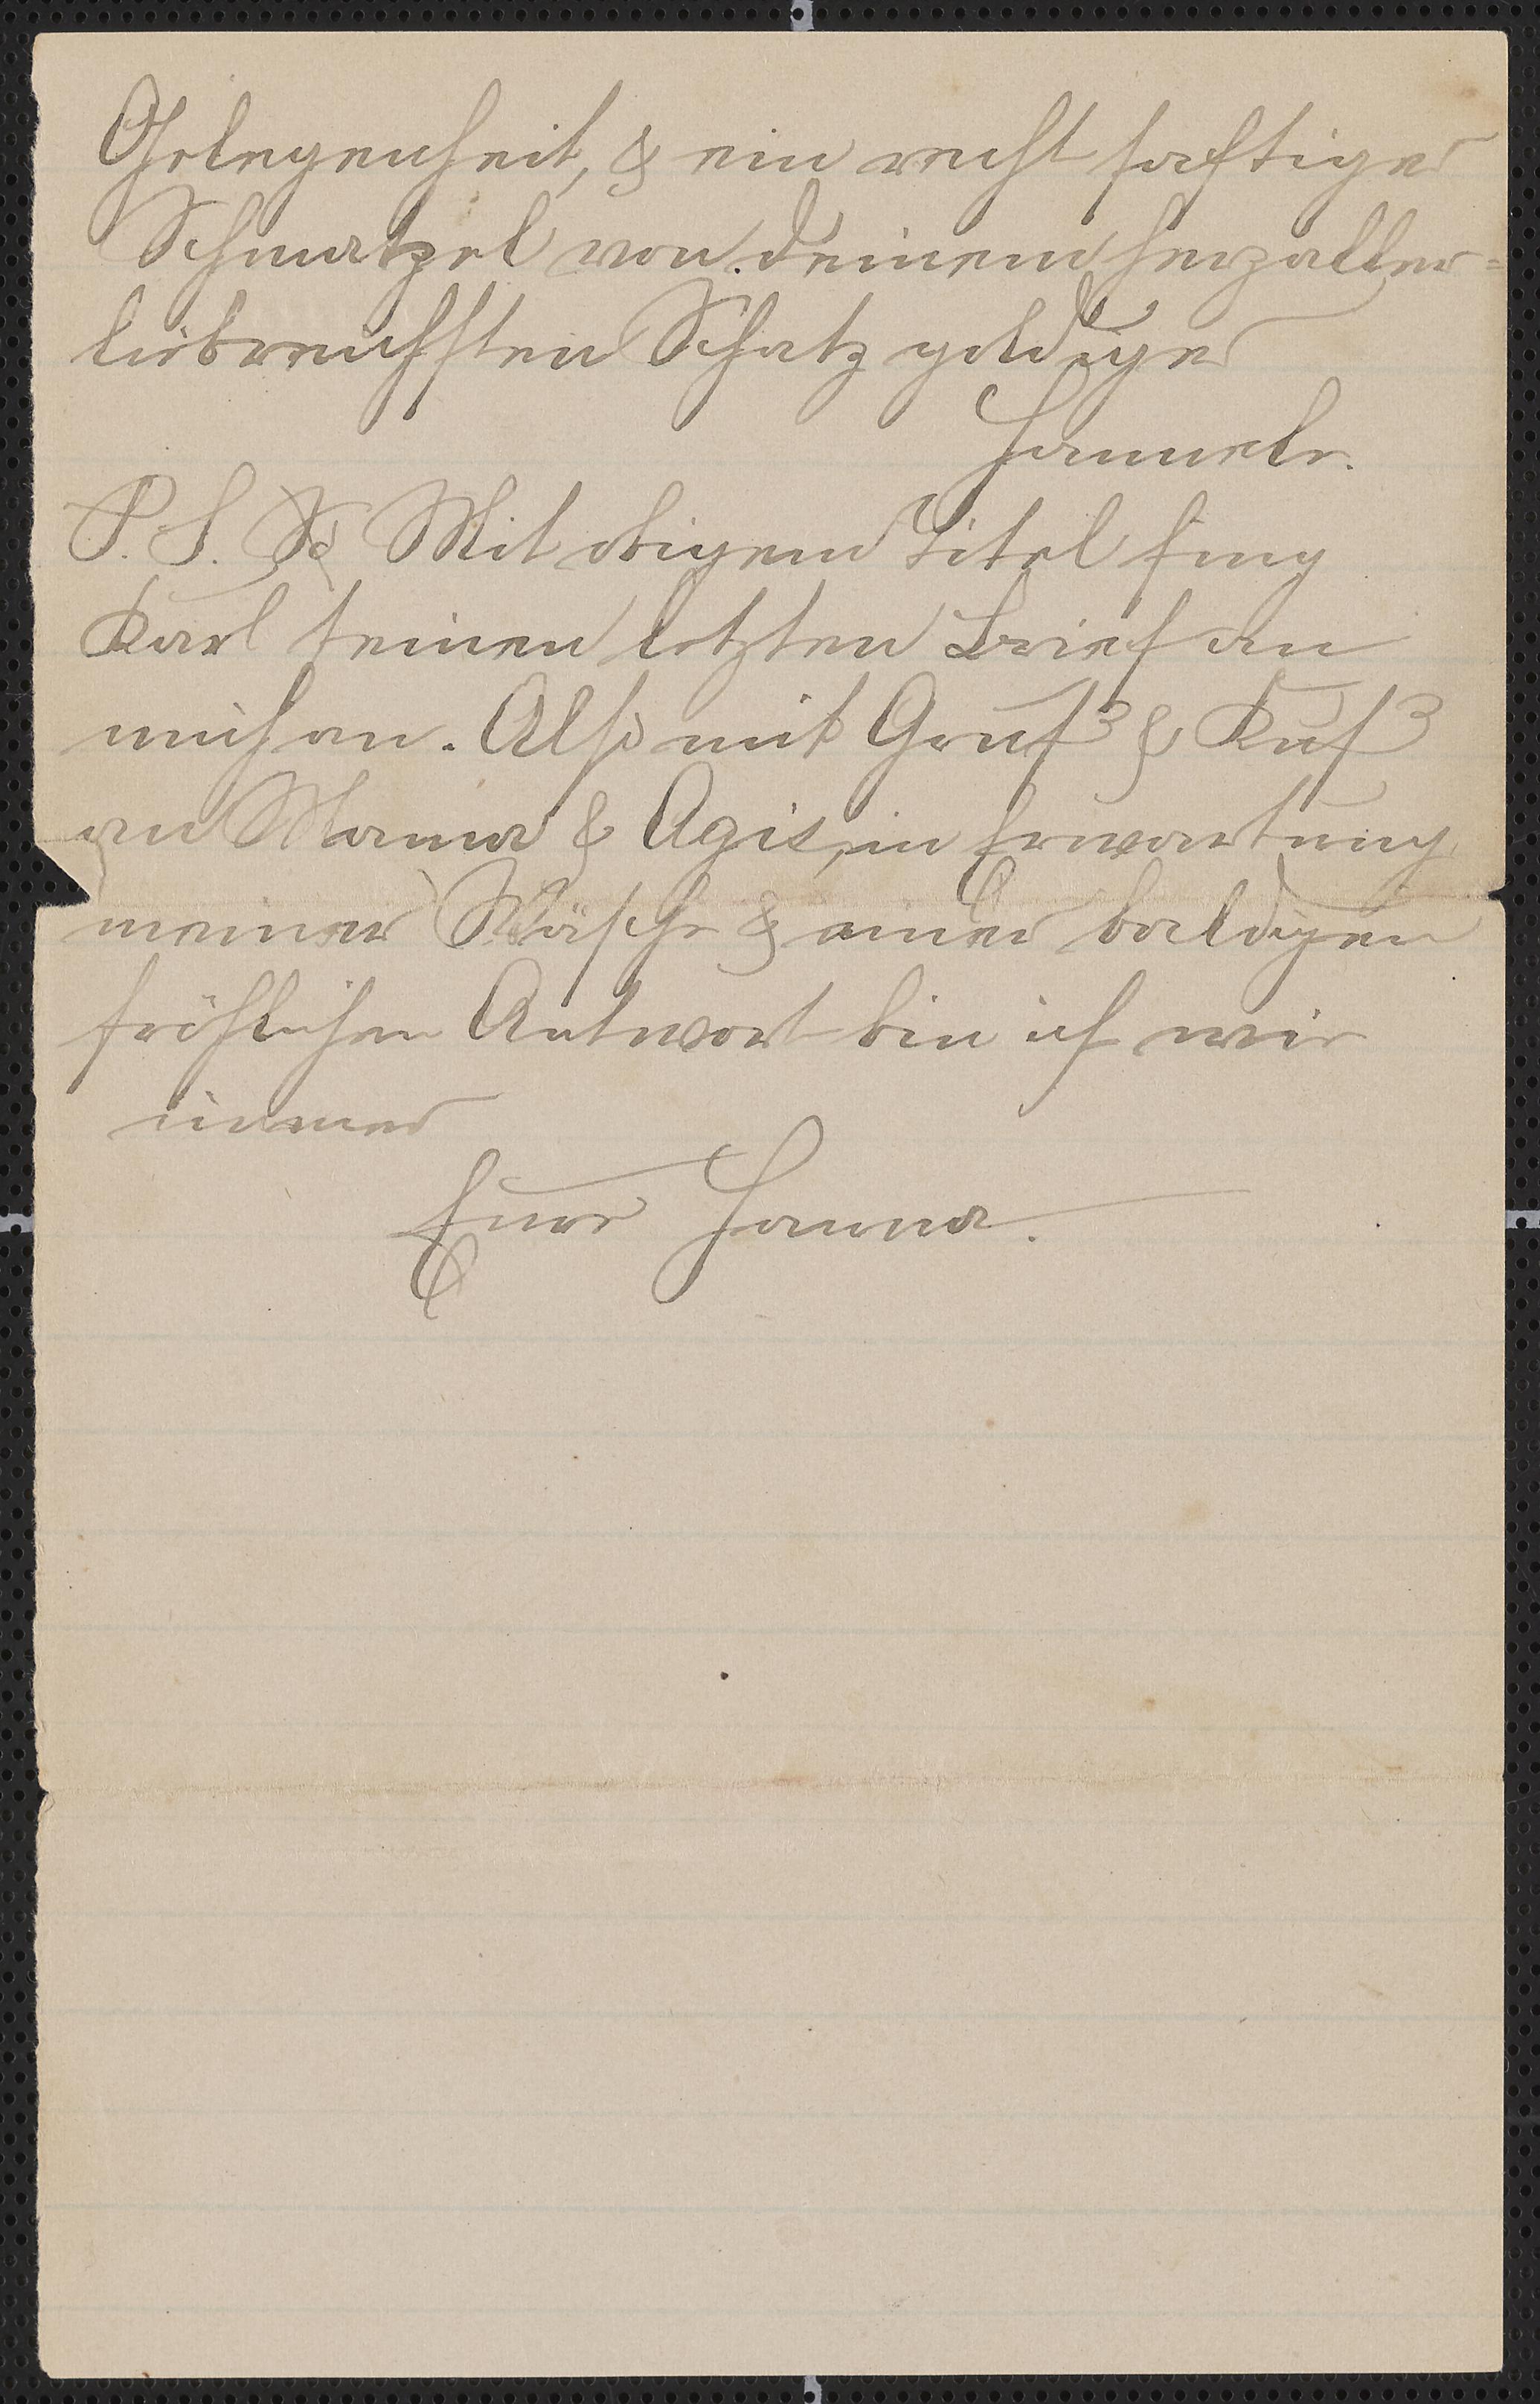 Gelegenheit, & ein recht saftiger
Schmatzel von deinem herzaller=
liebreichsten Schatz goldiger
Hannele.
P. S. Mit obigem Titel fing
Karl seinen letzten Brief an
mich an. Also mit Gruß & Kuß
an Mama & Agis, in Erwartung
meiner Wäsche & einer baldigen
fröhlichen Antwort bin ich wie
immer
Eure Hanna.